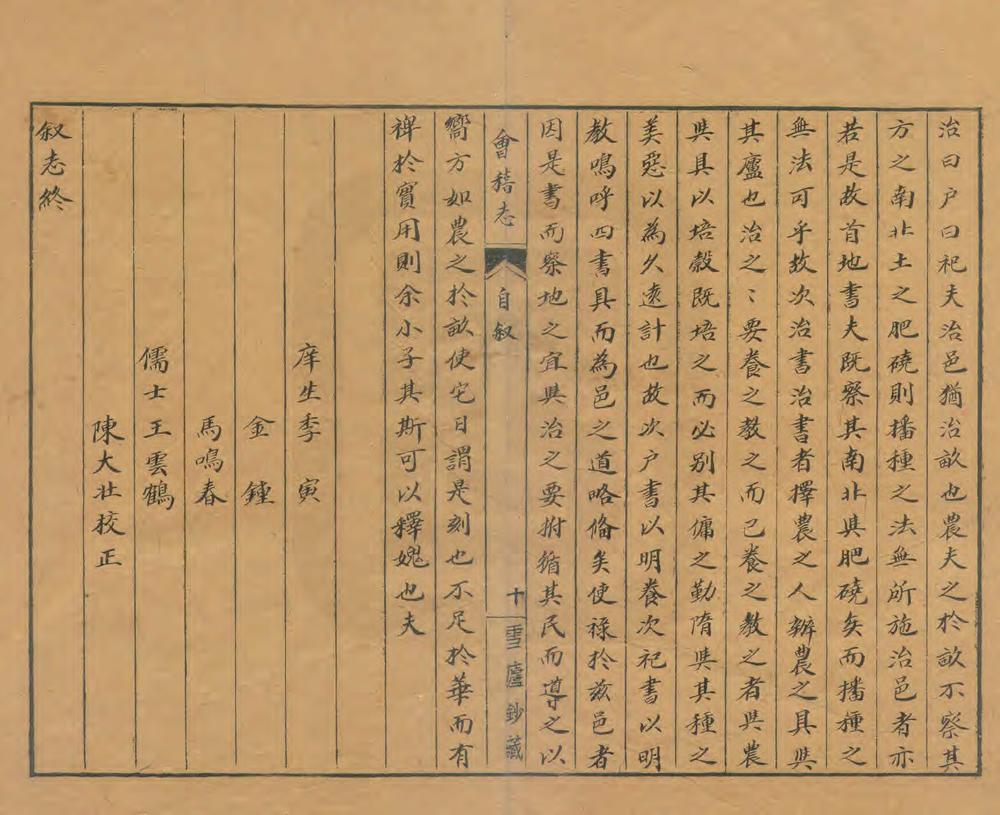 治曰户曰祀夫治邑猶治畝也農夫之於畝不察其
方之南北土之肥磽則播種之法無所施治邑者亦
若是故首地書夫既察其南北與肥磽矣而播種之
無法可乎故次治書治書者擇農之人辦農之具與
其廬也治之〻要養之教之而已養之教之者與農
與具以培穀既培之而必別其傭之勤隋與其種之
美惡以為久遠計也故次户書以明養次祀書以明
教鳴呼四書具而為邑之道略俻矣使祿於茲邑者
因是書而察地之宜與治之要拊循其民而導之以
會稽志
自叙
十
雪廬鈔藏
嚮方如農之於畝使宅日謂是刻也不足於華而有
裨於實用則余小子其斯可以釋媿也夫
庠生季寅
金鍾
馬鳴春
儒士王雲鶴
陳大壯校正
叙志終